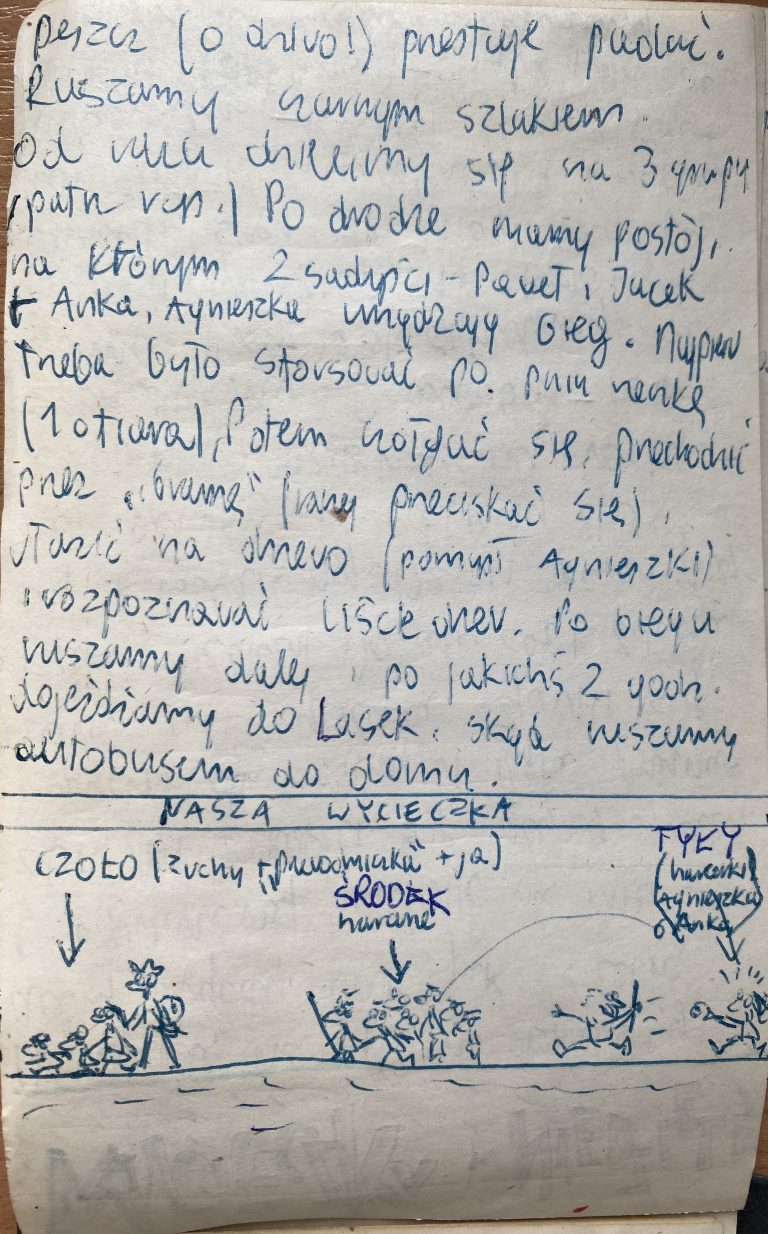 Deszcz (o dziwo!) przestaje padać.
Ruszamy czarnym szlakiem.
Od razu dzielimy się na 3 grupy
(patrz rys.) Po drodze mamy postój,
na którym 2 sadyści - Paweł i Jacek
+ Anka, Agnieszka urządzają bieg. Najpierw
trzeba było sforsować po pniu rzeczkę
(1 ofiara), Potem czołgać się, przechodzić
przez "bramę" (raczej przeciskać się),
włazić na drzewo (pomysł Agnieszki)
i rozpoznawać liście drzew. Po biegu
ruszamy dalej i po jakichś 2 godz.
dojeżdżamy do Lasek, skąd ruszamy
autobusem do domu.
NASZA WYCIECZKA
CZOŁO (zuchy + "przewodniczka" + ja)
ŚRODEK
harcerze
TYŁY
(harcerki
Agnieszka
Anka)